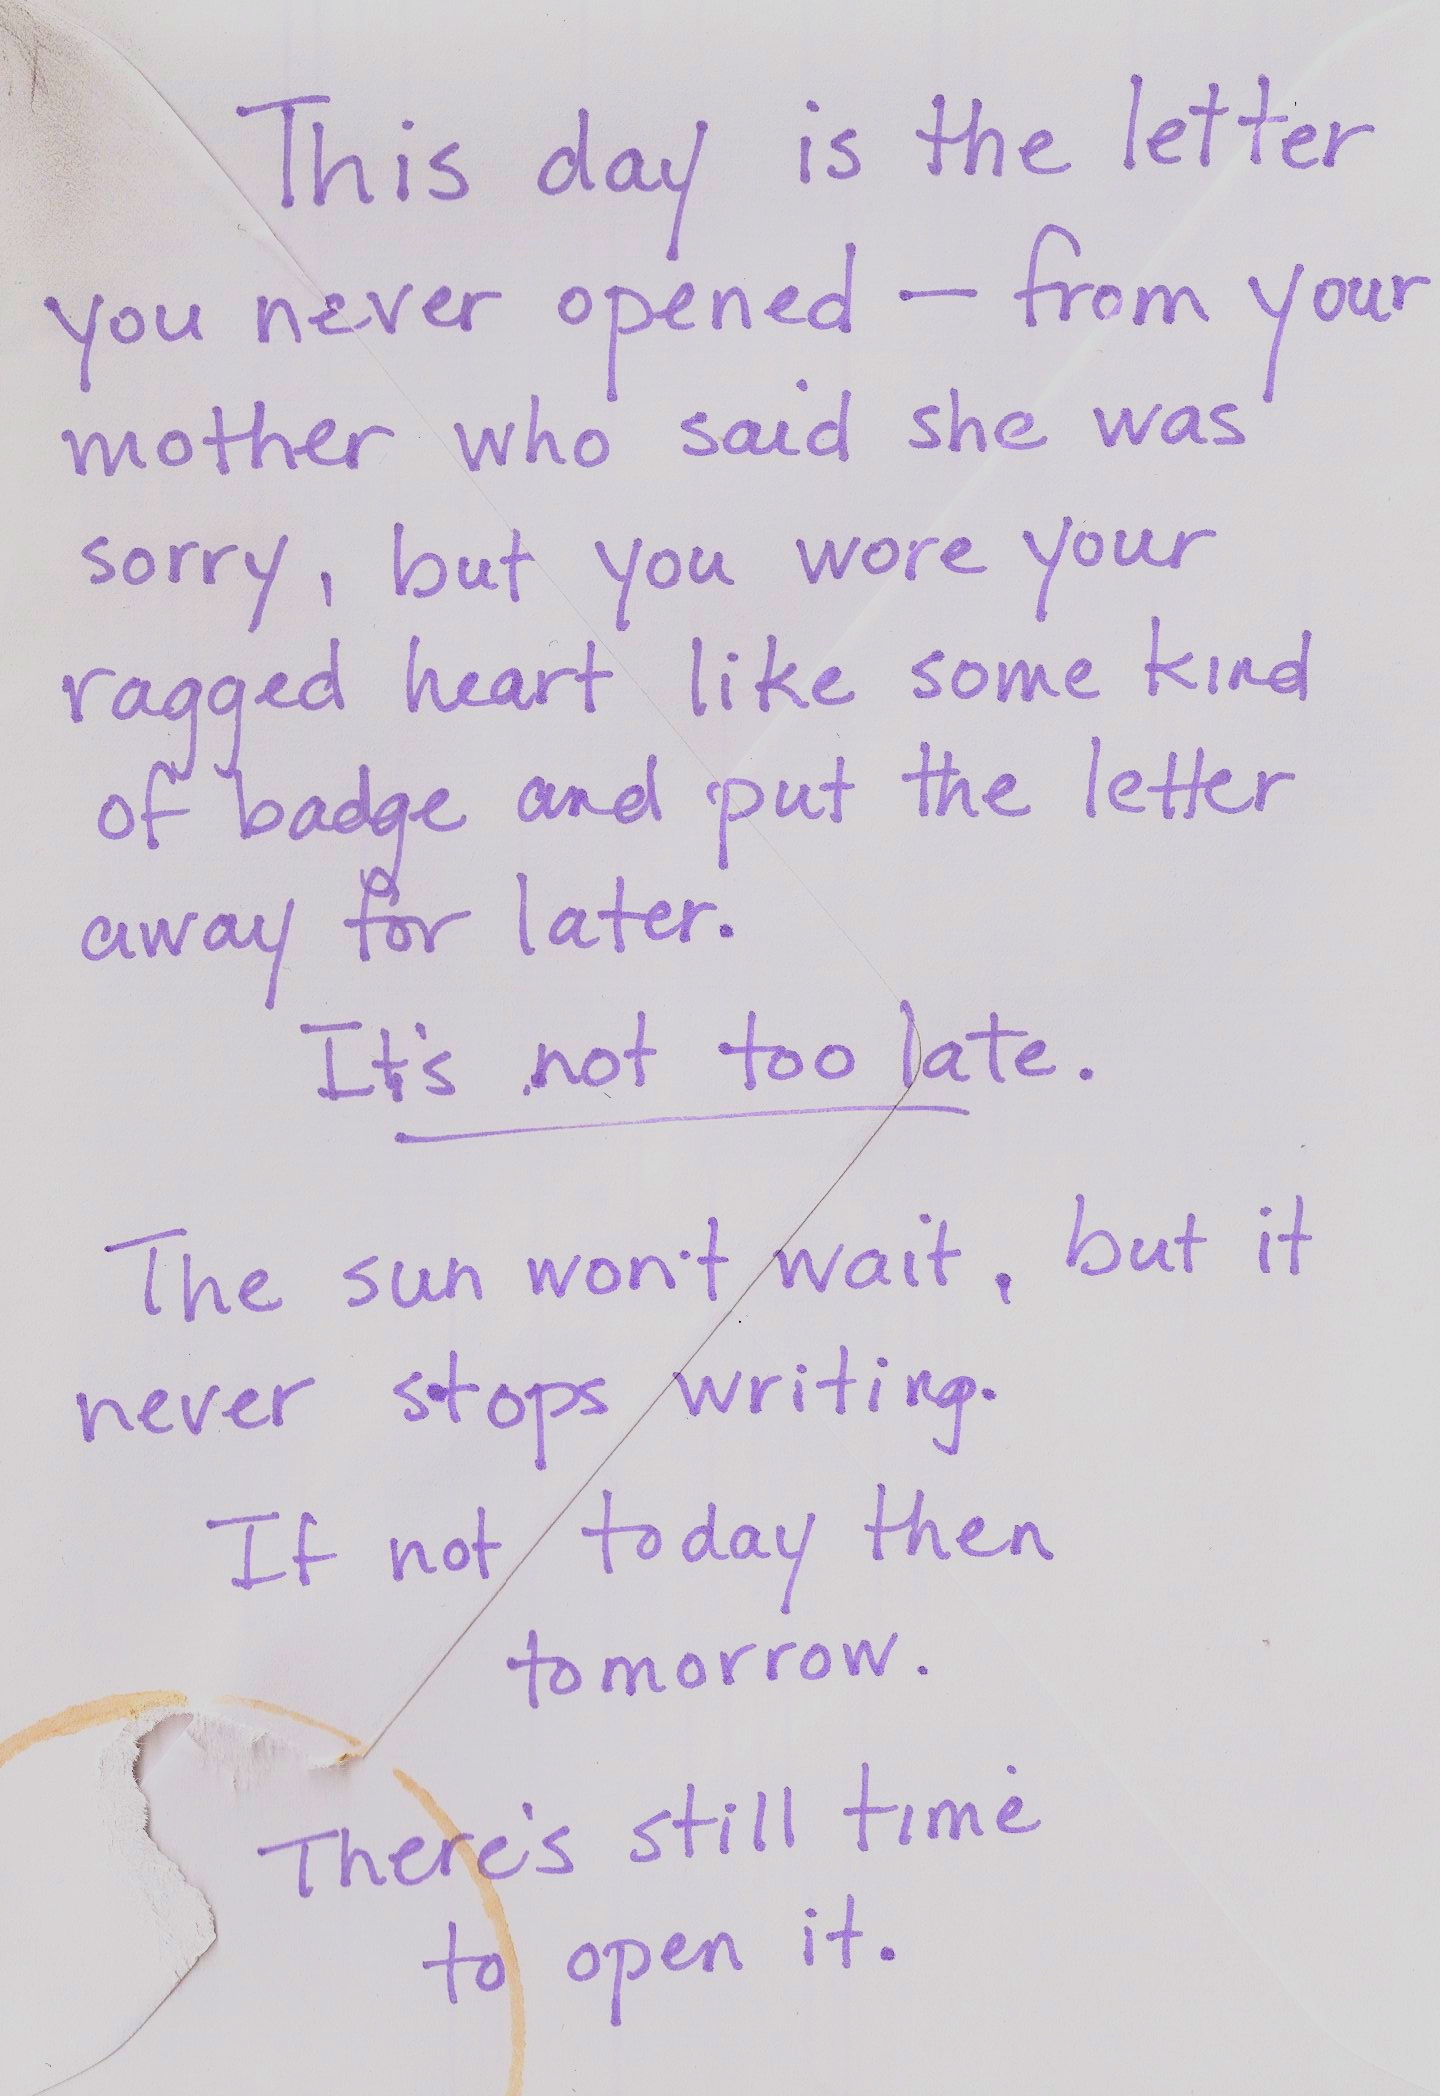 This day is the letter
you never opened — from your
mother who said she was
sorry, but you wore your
ragged heart like some kind
of badge and put the letter
away for later.
It's not too late.
The sun won't wait, but it
never stops writing.
If not today then
tomorrow.
There's still time
to open it.